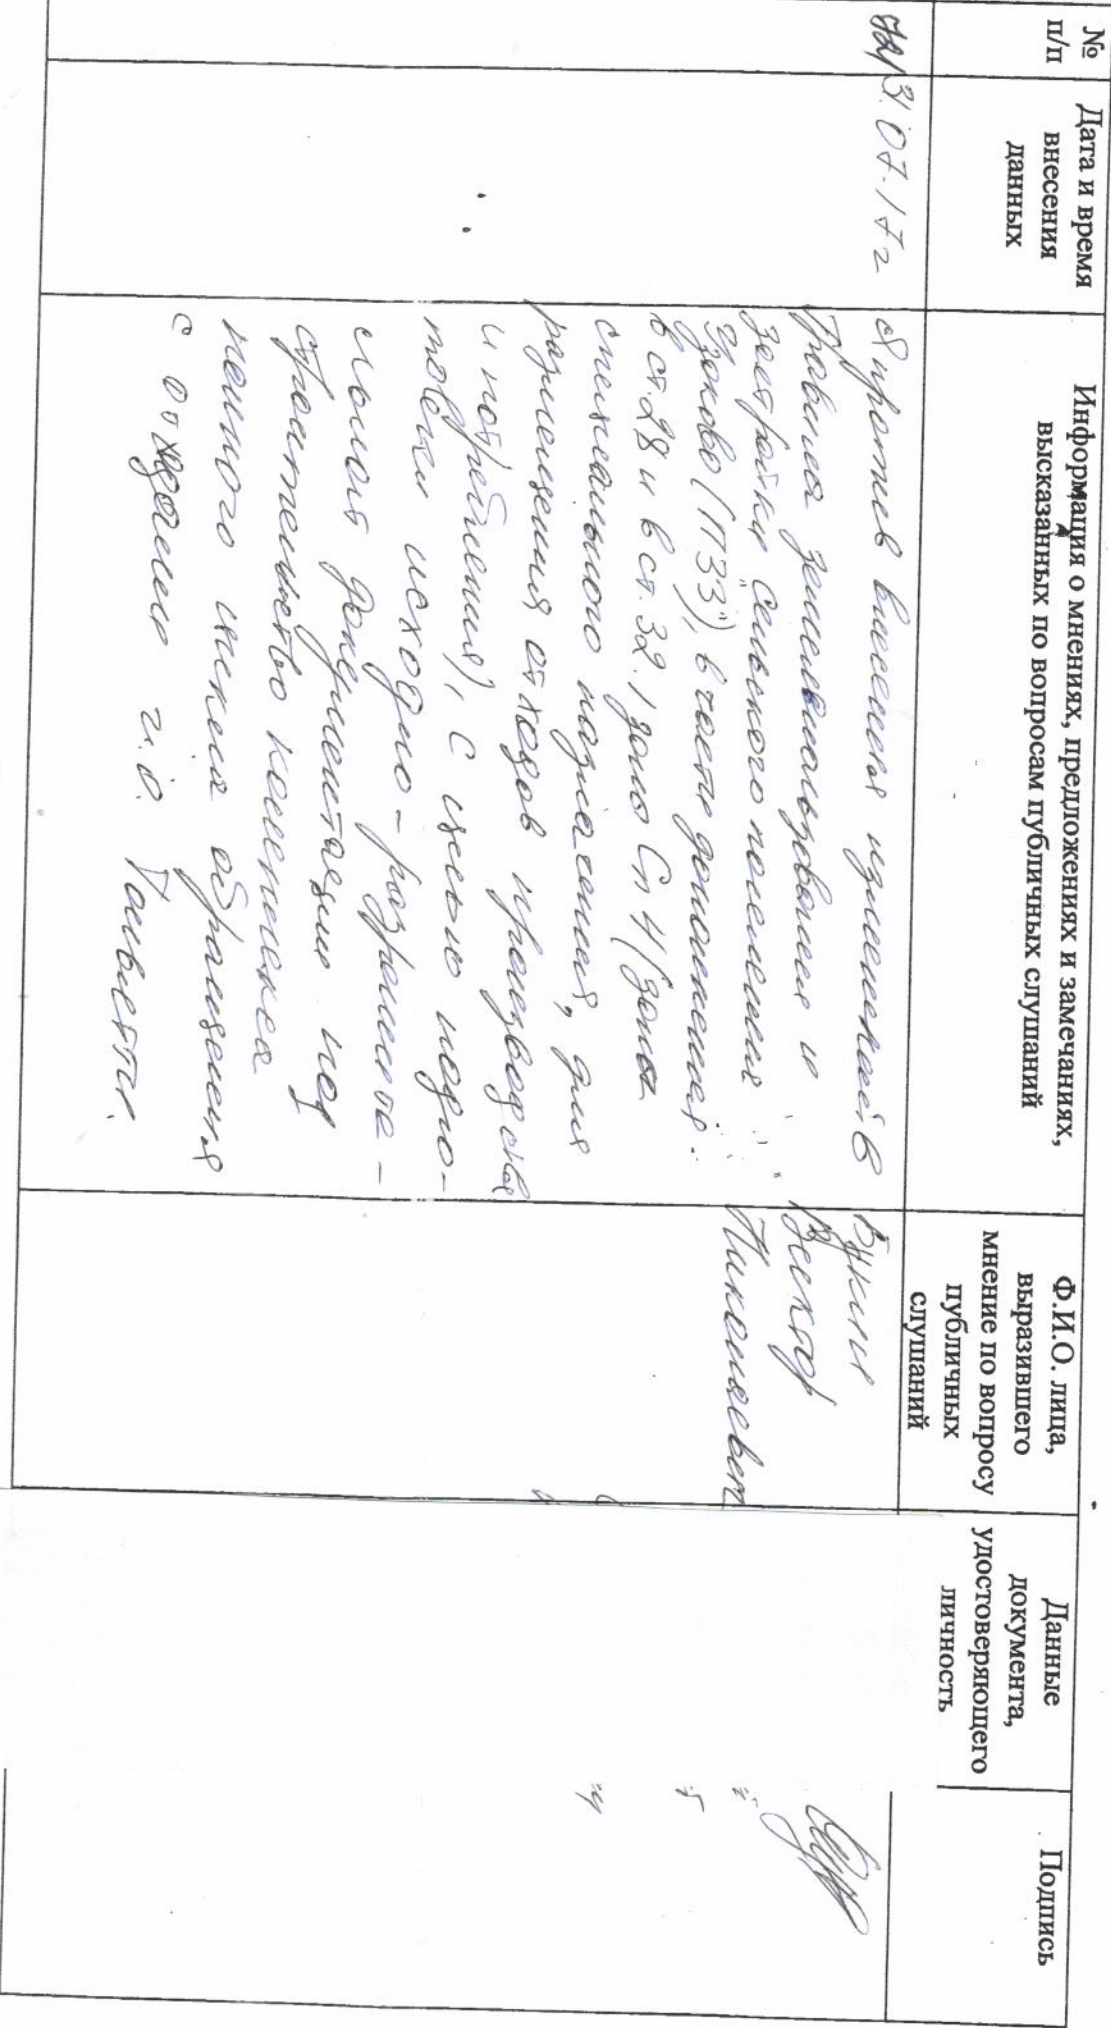 №
п/п
Дата и время
внесения
данных
Информация о мнениях, предложениях и замечаниях,
высказанных по вопросам публичных слушаний
Ф.И.О. лица,
выразившего
мнение по вопросу
публичных
слушаний
Данные
документа,
удостоверяющего
личность
Подпись
31.07.17г
Я против внесения изменений в
Правила землепользования и
застройки "сельского поселения
Узюково (ПЗЗ"), в части дополнения
в ст.28 и в ст.32.1 зоны Сп4 (зона
специального назначения, для
размещения отходов производства
и потребления), с целью подго-
товки исходно-разрешите-
льной документации под
строительство комплекса
с отходами г.о. Тольятти.
Виктор
Николаевич